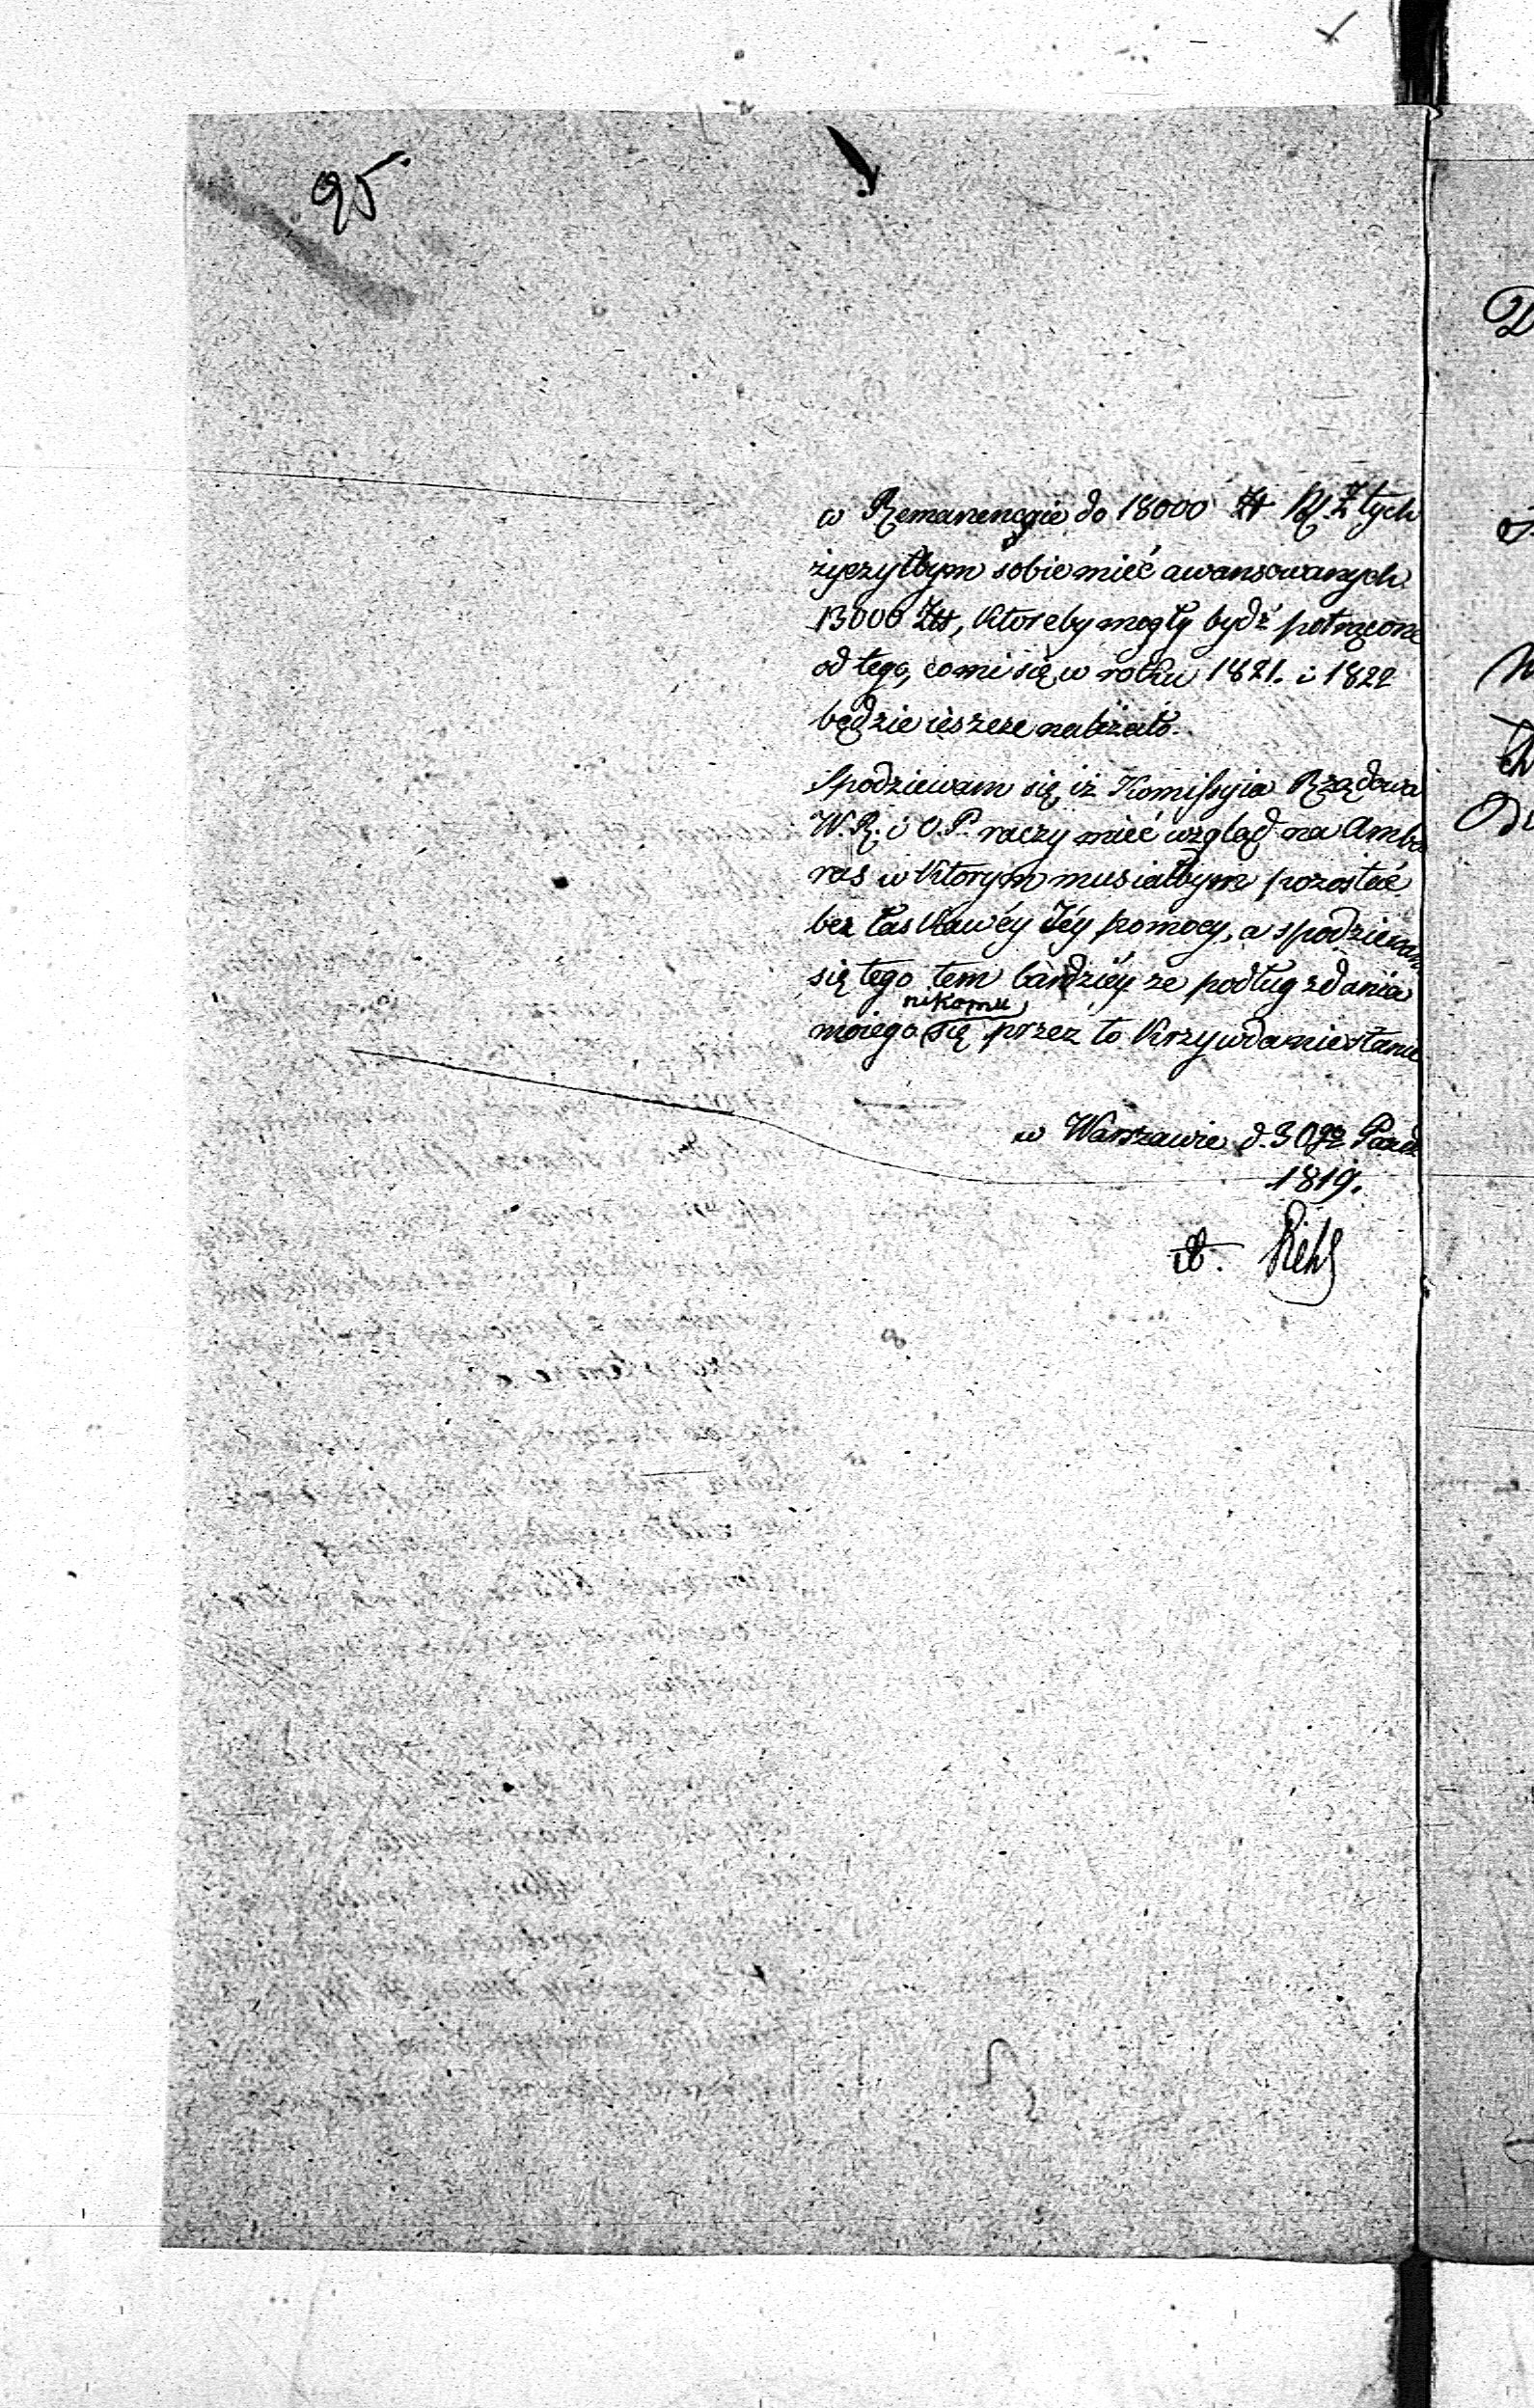 95
w Remanencyie do 18000 Zł Pl. Z tych
życzyłbym sobie mieć awansowanych
13000 Złł, ktoreby mogły bydź potrącone
od tego, co mi się w roku 1821. i 1822
będzie ieszcze należało.
Spodziewam się, iż Komissyia Rządowa
W. R. i O. P. raczy mieć wzgląd na Amba
ras w ktorym musiałbym pozostać
bez łaskawéy Jéy pomocy, a spodziewam
się tego tem bardziéy ze podług zdania
nikomu
moiego się przez to krzywda nie stanie
w Warszawie d. 30go Pazdz
1819.